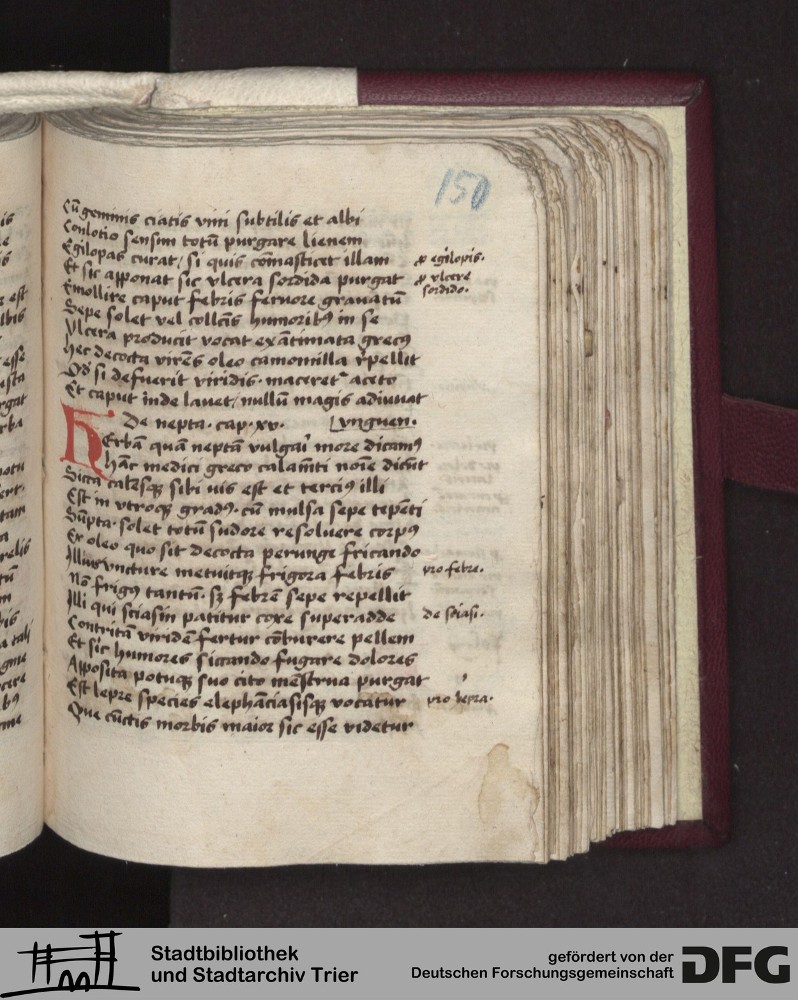 150
Cū geminis ciatis vini subtilis et albi
Conlotio sensim totū purgare lienem
Egilopas curat / si quis cōmasticet illam
ꝓ egilopis.
Et sic apponat sic vlcera sordida purgat
ꝓ vlcere
sordido.
Emollire caput febris feruore grauatū
Sepe solet vel collēis humoribꝰ in se
Vlcera producit vocat exātimata grecꝰ
Hec decocta virēs oleo camomilla r̄pellit
si defuerit viridis. maceret aceto
Et caput inde lauet / nullū magis adiuuat
De nepta. cap. xv. vnguen.
HErbā quā neptā vulgari more dicamꝰ
hāc medici greco calamīti noīe dicūt
Sicca calēsqꝫ sibi uis est et terciꝰ illi
Est in vtroqꝫ gradꝰ. cū mulsa sepe tepēti
Sūpta. solet totū sudore resoluere corpꝰ
Ex oleo quo sit decocta perunge fricando
Illius vncture metuitqꝫ frigora febris
pro febre.
Nō frigꝰ tantū. sꝫ febrē sepe repellit
Illi qui sciasin patitur coxe superadde
de sciasi.
Contritā viridē fertur cōburere pellem
Et sic humores siccando fugare dolores
Apposita potuqꝫ suo cito mēstrua purgat
Est lepre species elephāciasisqꝫ vocatur
pro lepra.
Que cūctis morbis maior sic esse videtur
is
le
is
est
lbis
esse
usta
rgat
rba
notu
fert.
tam
a
relis
tū
m
bis
a tali
gme
cere
bꝰ
me
Stadtbibliothek
und Stadtarchiv Trier
gefördert von der
Deutschen Forschungsgemeinschaft
DFG